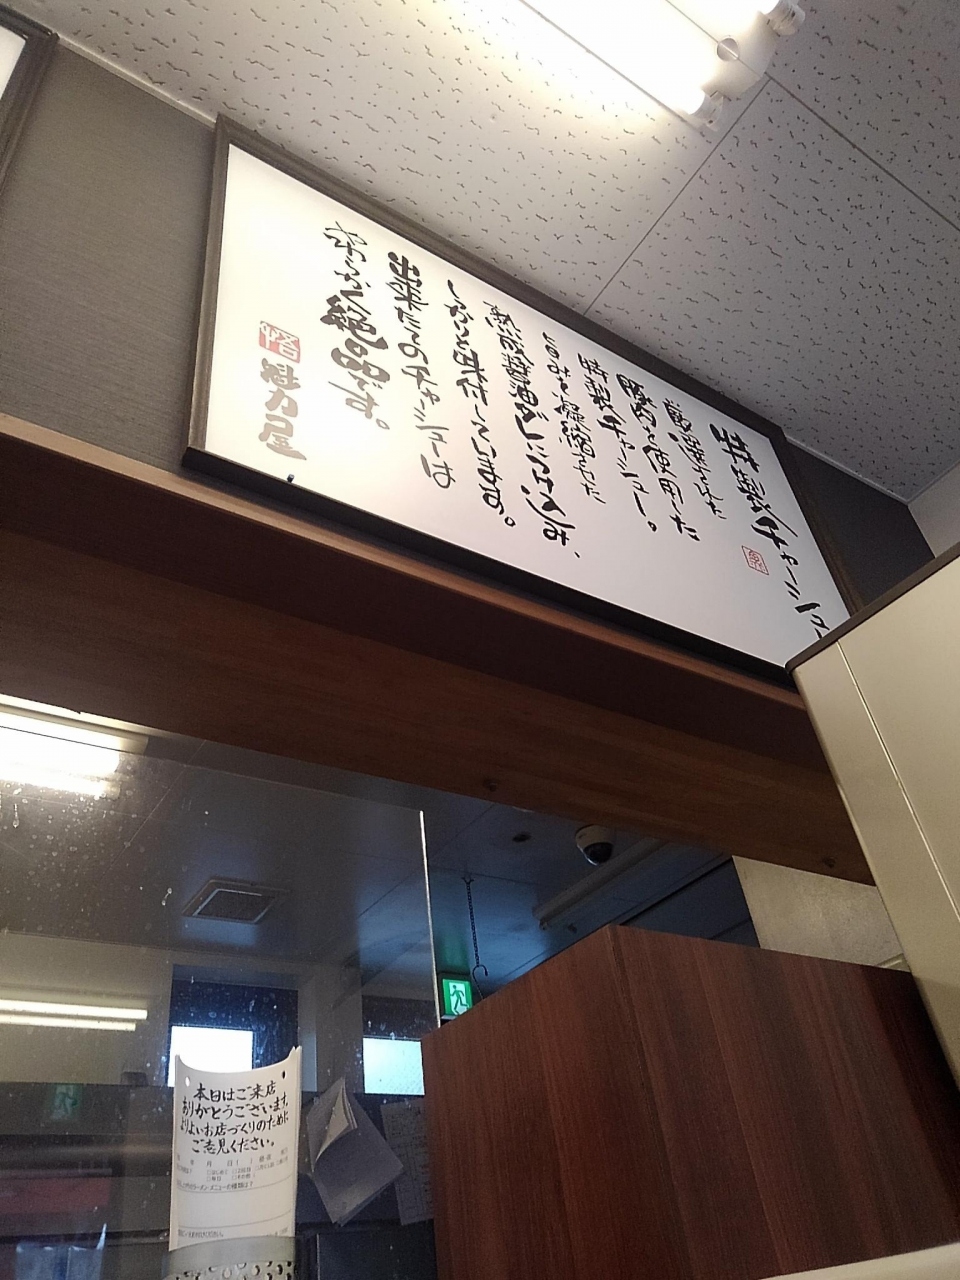 特製チャーシュー
厳選された
豚肉を使用した
特製チャーシュー。
旨みを凝縮された
熟成醤油ダレにつけ込み、
しっかりと味付しています。
出来たてのチャーシューは
やわらかく絶品です。
魁力屋
本日はご来店
ありがとうございます。
よりよいお店づくりのために
ご意見ください。